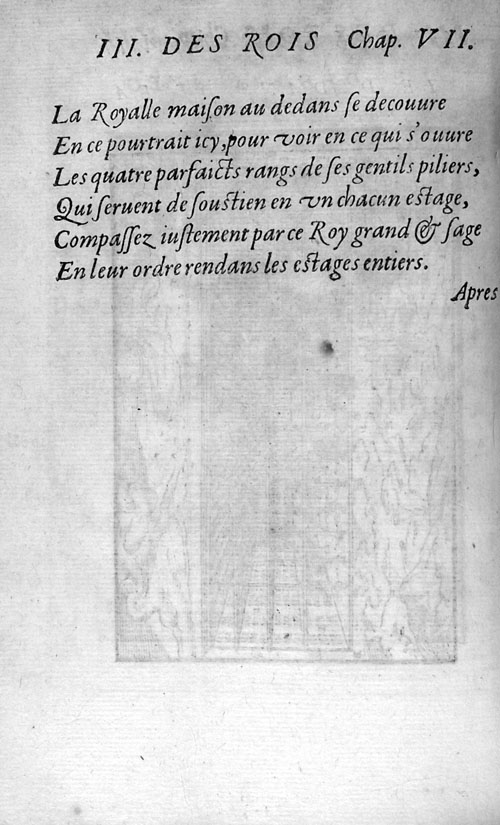 III. DES ROIS Chap. VII.
La Royalle maiſon au dedans ſe decouure
En ce pourtrait icy, pour voir en ce qui s'ouure
Les quatre parfaicts rangs de ſes gentils piliers,
Qui ſeruent de ſouſtien en vn chacun eſtage,
Compaſſez iuſtement par ce Roy grand & ſage
En leur ordre rendans les eſtages entiers.
Apres